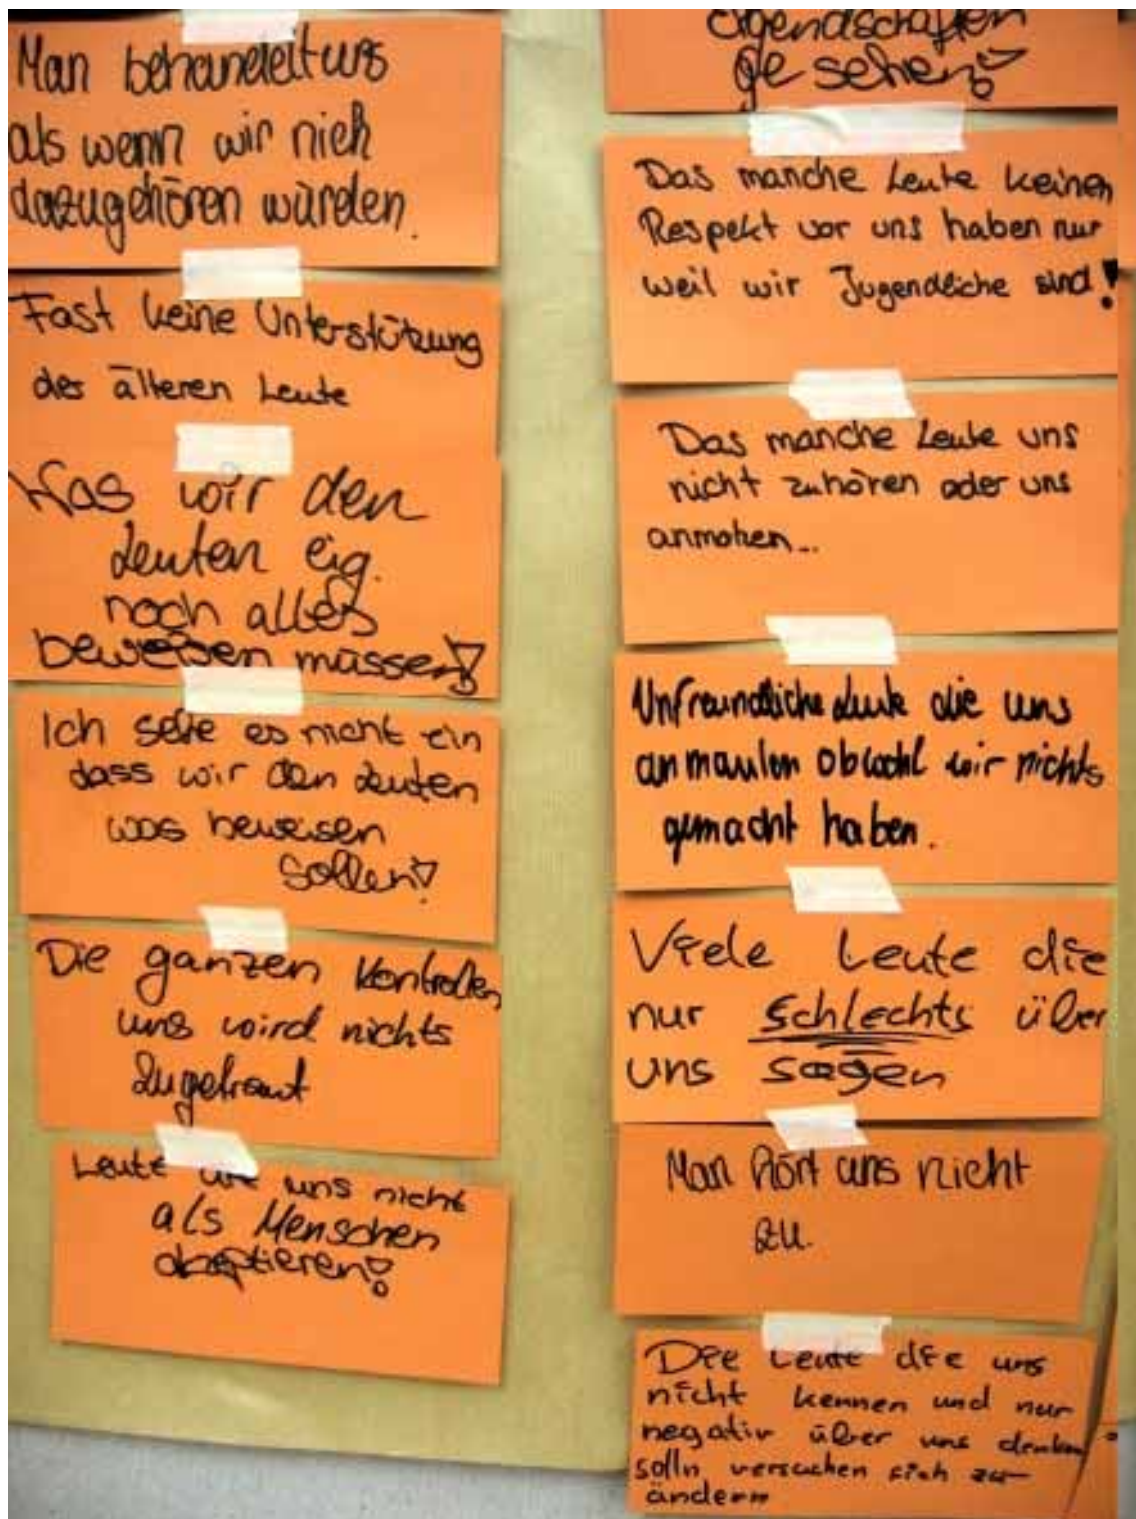 Man behandelt uns
als wenn wir nich
dazugehören würden.
Fast keine Unterstützung
der älteren Leute
Was wir den
Leuten eig.
noch alles
beweisen müssen!
Ich sehe es nicht ein
dass wir den Leuten
was beweisen
sollen!
Die ganzen Kontrollen,
uns wird nichts
zugetraut
Leute die uns nicht
als Menschen
akzeptieren!
gesehen!
Das manche Leute keinen
Respekt vor uns haben nur
weil wir Jugendliche sind!
Das manche Leute uns
nicht zuhören oder uns
anmotzen...
Unfreundliche Leute die uns
anmaulen obwohl wir nichts
gemacht haben.
Viele Leute die
nur schlechts über
uns sagen
Man hört uns nicht
zu.
Die Leute die uns
nicht kennen und nur
negativ über uns denken
solln versuchen sich zu
ändern